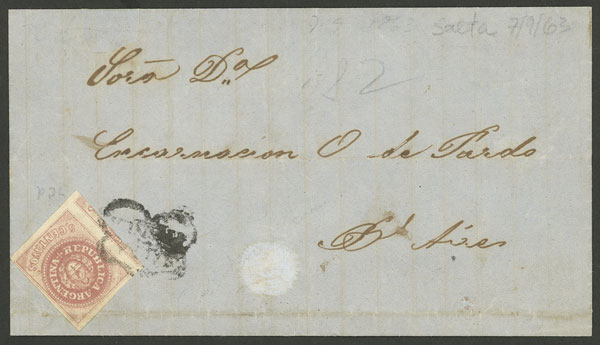 Salta 7/9/63
Sorã Dña
Encarnacion O de Pardo
Bs Aires
REPUBLICA ARGENTINA
5 CENTAVOS